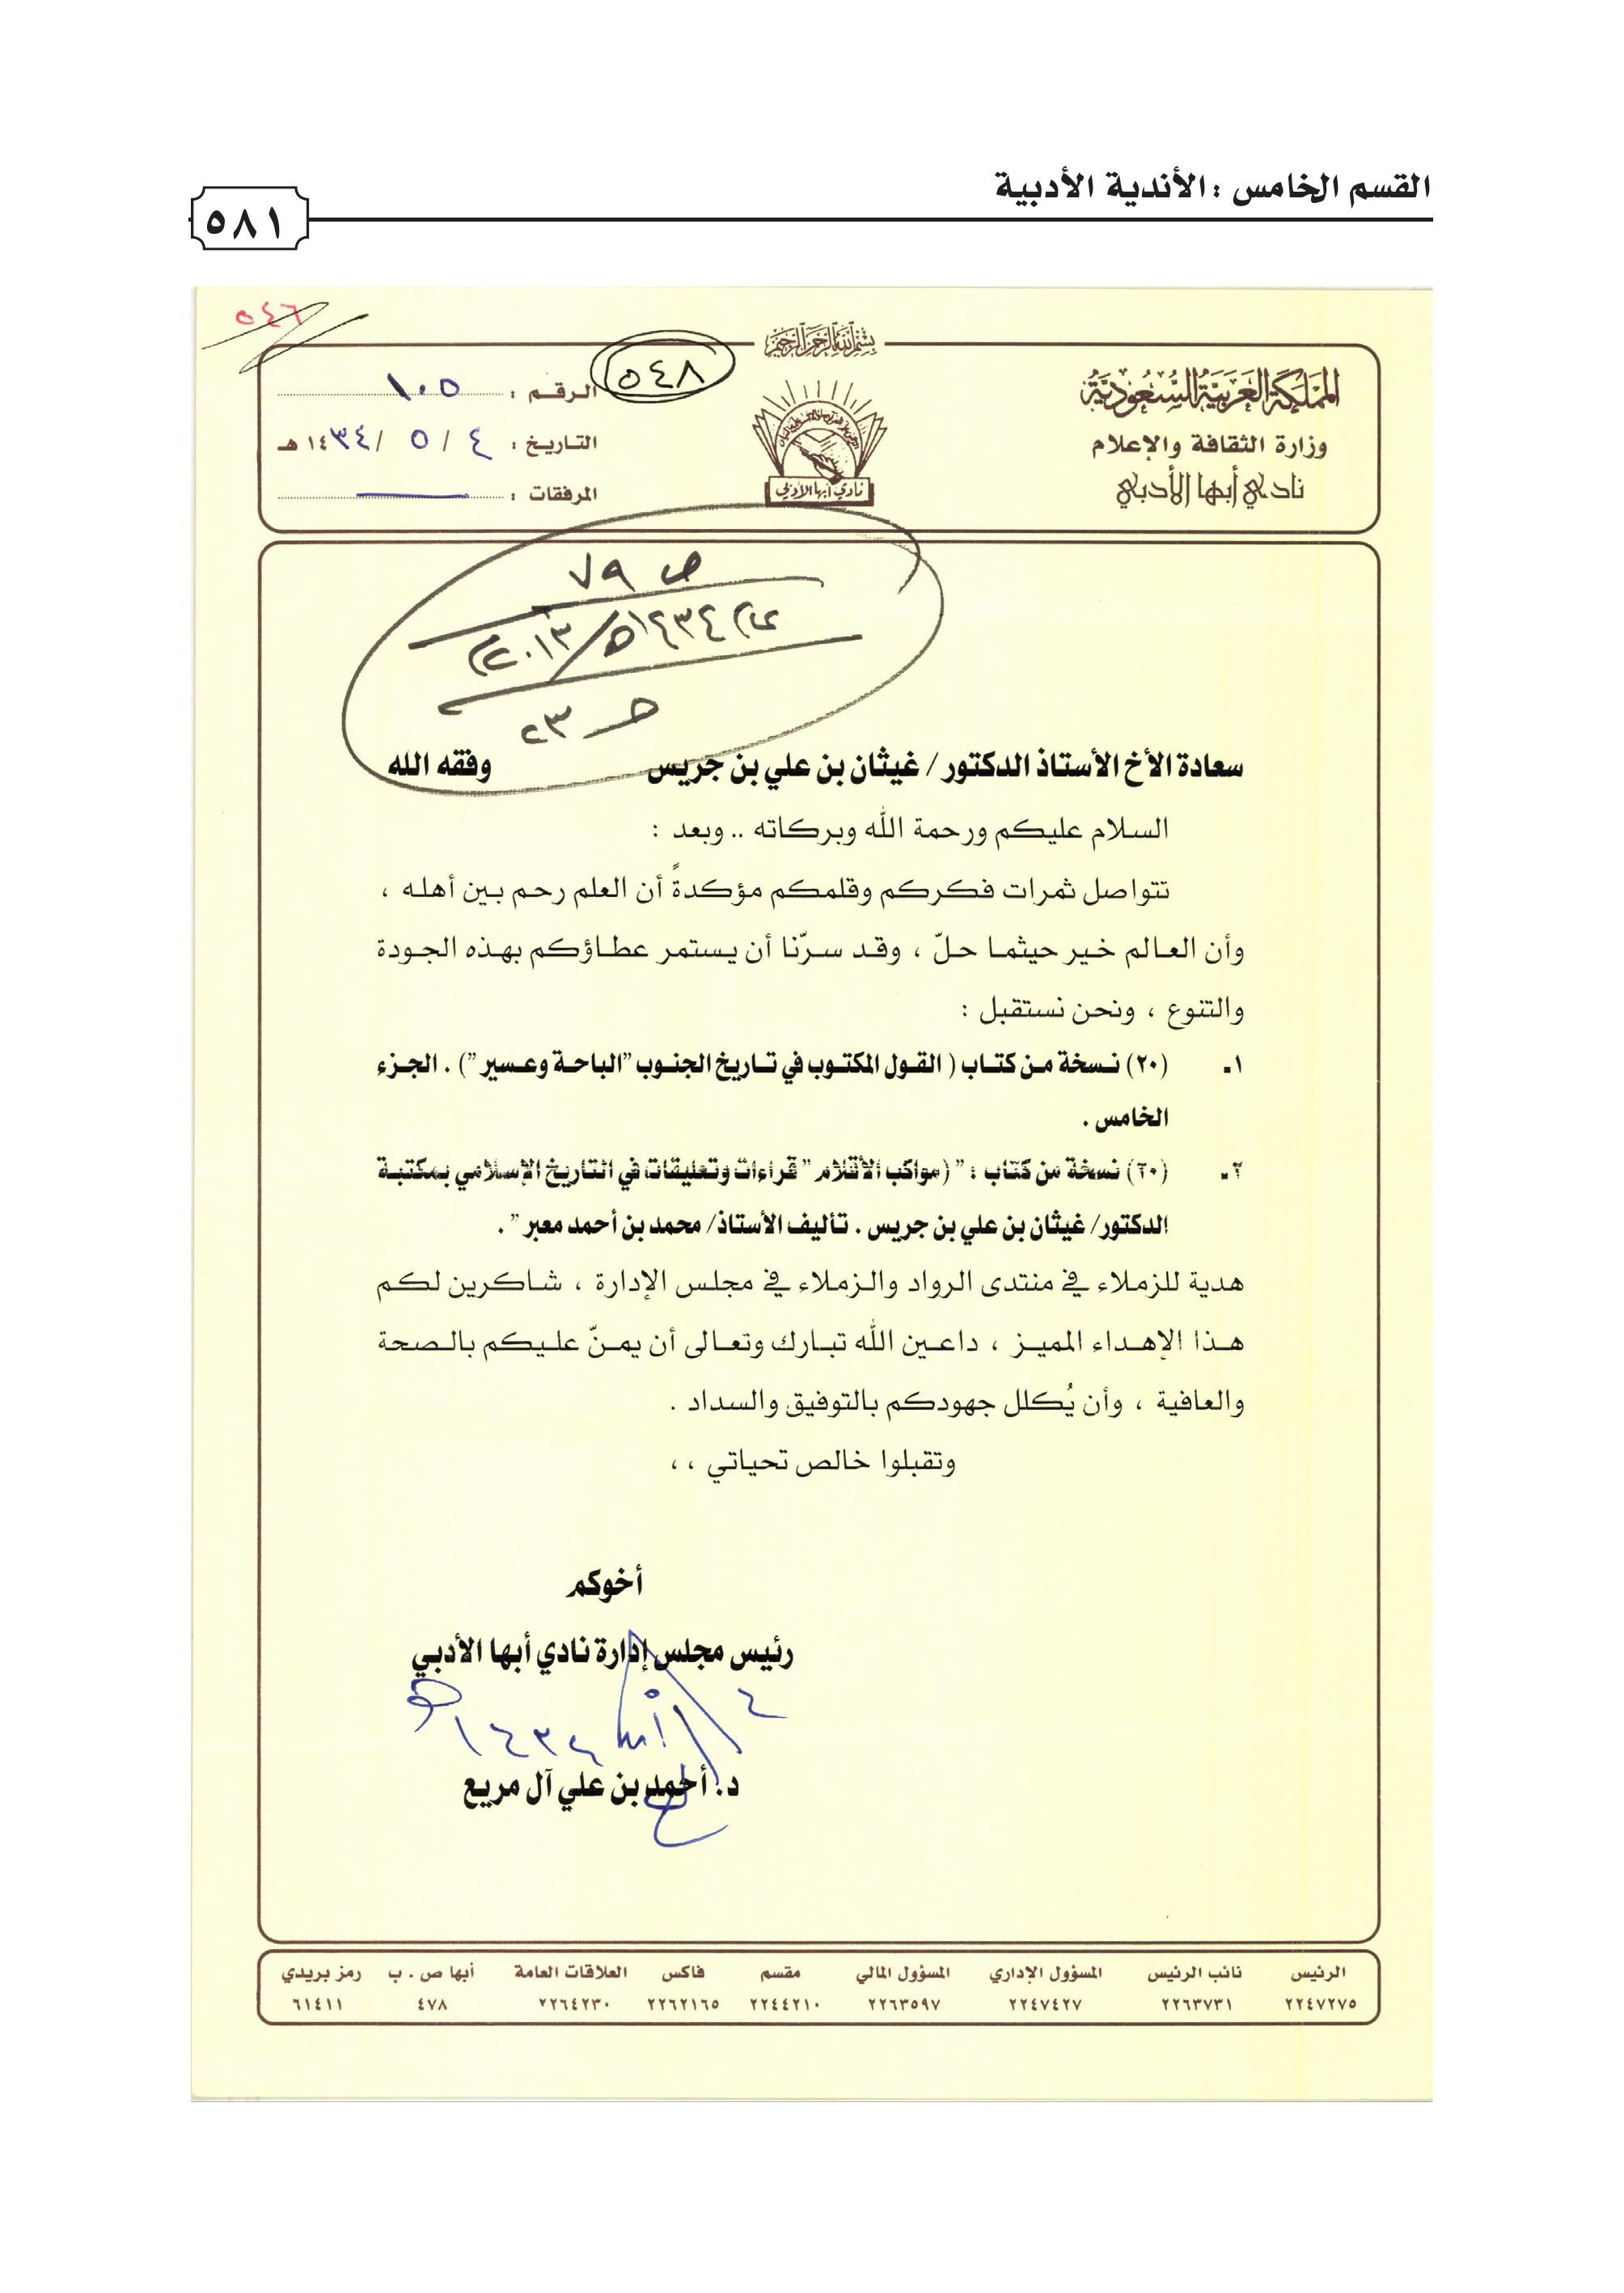 القسم الخامس : الأندية الأدبية
٥٨١
٥٤٦
بسم الله الرحمن الرحيم
٥٤٨
المملكة العربية السعودية
وزارة الثقافة والإعلام
نادي أبها الأدبي
نادي أبها الأدبي
الرقم : ١٠٥
التاريخ : ٤ / ٥ / ١٤٣٤ هـ
المرفقات :
ص ٧٩
١٤٣٤هـ / ٢٠١٣م
سعادة الأخ الأستاذ الدكتور/ غيثان بن علي بن جريس وفقه الله
السلام عليكم ورحمة الله وبركاته .. وبعد :
تتواصل ثمرات فكركم وقلمكم مؤكدةً أن العلم رحم بين أهله ،
وأن العالم خير حيثما حلّ ، وقد سرّنا أن يستمر عطاؤكم بهذه الجودة
والتنوع ، ونحن نستقبل :
١- (٢٠) نسخة من كتاب ( القول المكتوب في تاريخ الجنوب "الباحة وعسير") . الجزء
الخامس .
٢- (٢٠) نسخة من كتاب : " (مواكب الأقلام " قراءات وتعليقات في التاريخ الإسلامي بمكتبة
الدكتور/ غيثان بن علي بن جريس . تأليف الأستاذ/ محمد بن أحمد معبر " .
هدية للزملاء في منتدى الرواد والزملاء في مجلس الإدارة ، شاكرين لكم
هذا الإهداء المميز ، داعين الله تبارك وتعالى أن يمنّ عليكم بالصحة
والعافية ، وأن يُكلل جهودكم بالتوفيق والسداد .
وتقبلوا خالص تحياتي ، ،
أخوكم
رئيس مجلس إدارة نادي أبها الأدبي
د. أحمد بن علي آل مريع
الرئيس نائب الرئيس المسؤول الإداري المسؤول المالي مقسم فاكس العلاقات العامة أبها ص . ب رمز بريدي
٢٢٤٧٢٧٥ ٢٢٦٣٧٣١ ٢٢٤٧٤٢٧ ٢٢٦٣٥٩٧ ٢٢٤٤٢١٠ ٢٢٦٢١٦٥ ٢٢٦٤٢٣٠ ٤٧٨ ٦١٤١١